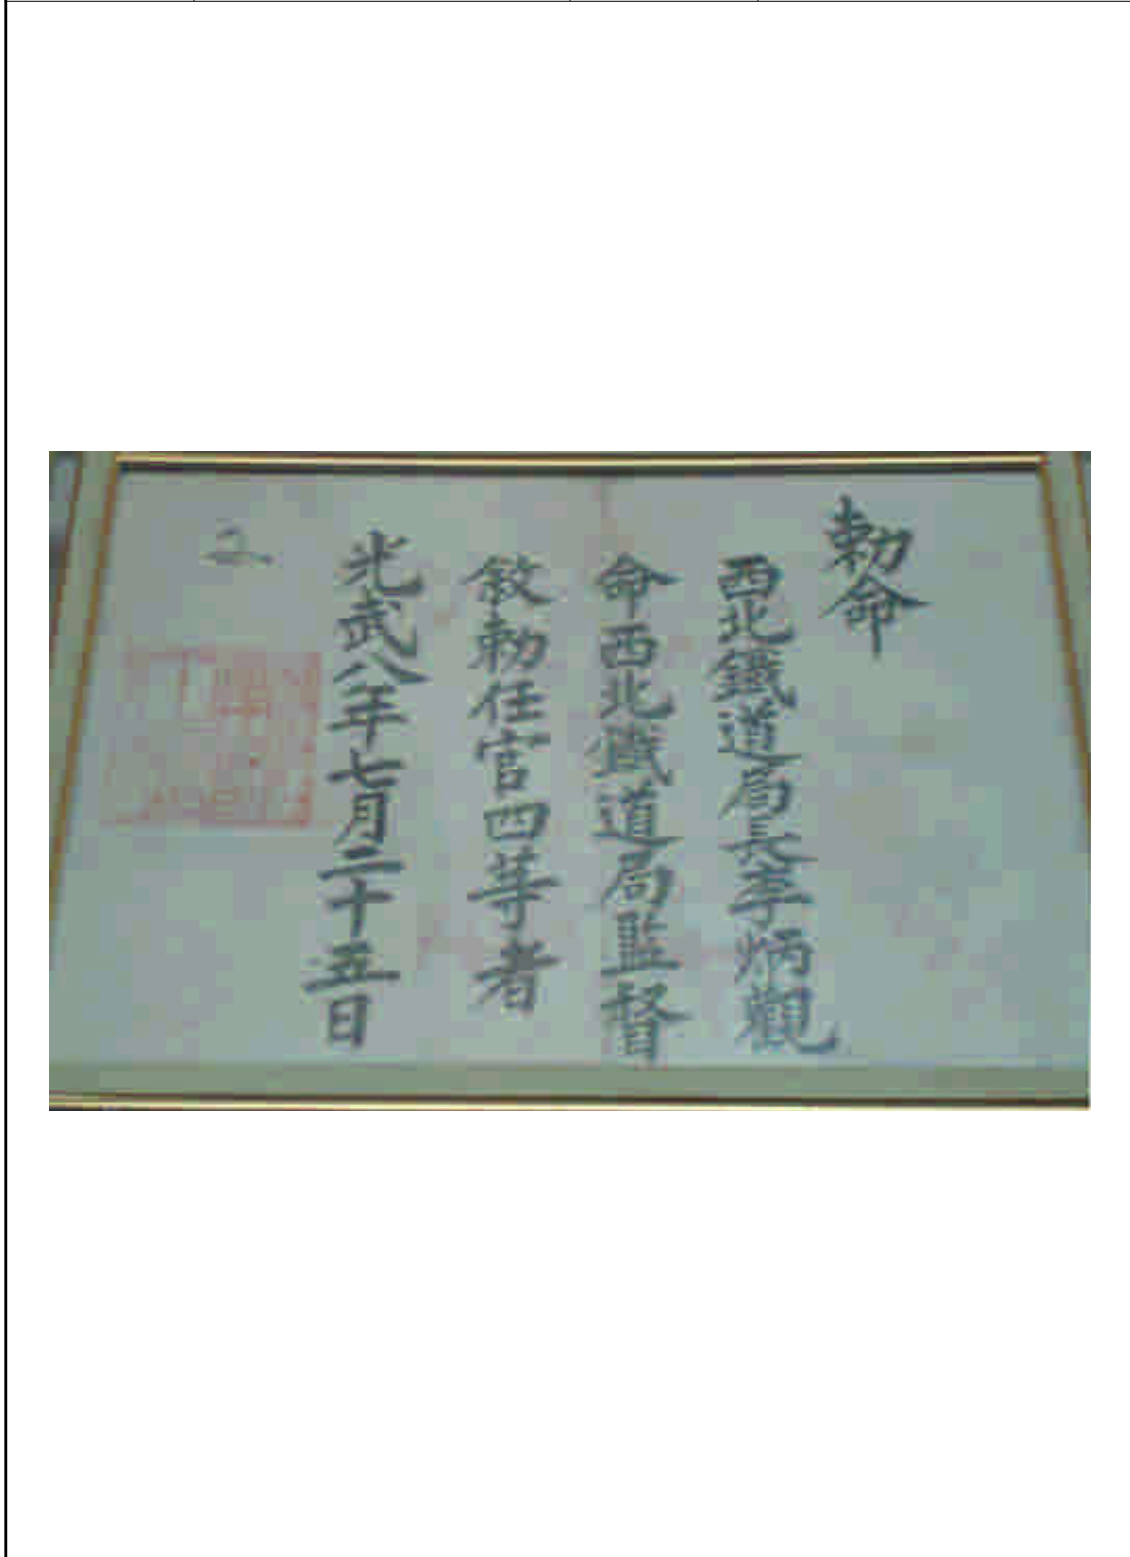 勅命
西北鐵道局長李炳觀
命西北鐵道局監督
敍勅任官四等者
光武八年七月二十五日
2